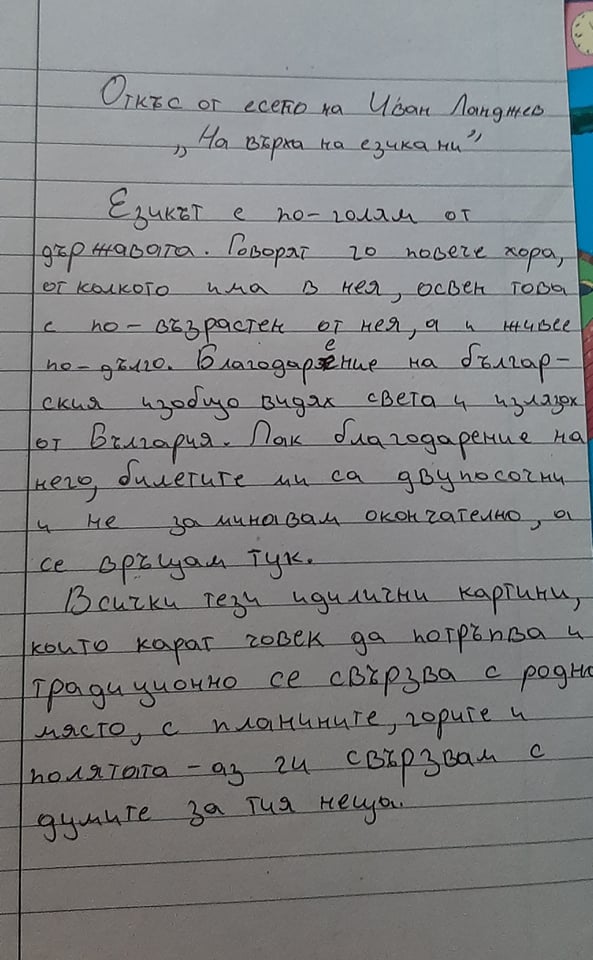 Откъс от есето на Иван Ланджев
„На върха на езика ни"
Езикът е по-голям от
държавата. Говорят го повече хора,
отколкото има в нея, освен това
с по-възрастен от нея, а и живее
по-дълго. Благодарение на българ-
ския изобщо видях света и излязох
от България. Пак благодарение на
него, билетите ми са двупосочни
и не заминавам окончателно, а
се връщам тук.
Всички тези идилични картини,
които карат човек да потръпва и
традиционно се свързва с родно
място, с планините, горите и
полятата - аз ги свързвам с
думите за тия неща.